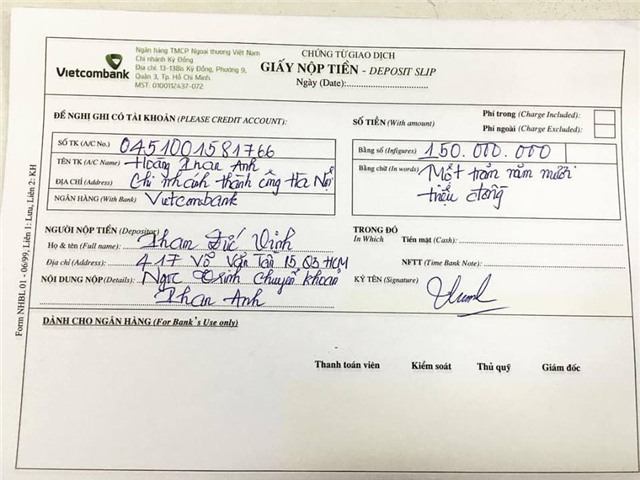 Vietcombank
Ngân hàng TMCP Ngoại thương Việt Nam
Chi nhánh Kỳ Đồng
Địa chỉ: 13-13Bis Kỳ Đồng, Phường 9,
Quận 3, Tp. Hồ Chí Minh.
MST: 0100112437-072
CHỨNG TỪ GIAO DỊCH
GIẤY NỘP TIỀN - DEPOSIT SLIP
Ngày (Date):
ĐỀ NGHỊ GHI CÓ TÀI KHOẢN (PLEASE CREDIT ACCOUNT):
SỐ TIỀN (With amount)
Phí trong (Charge Included):
Phí ngoài (Charge Excluded):
SỐ TK (A/C No.) 0451001581766
TÊN TK (A/C Name) Hoàng Phan Anh
ĐỊA CHỈ (Address) Chi nhánh thành công Hà Nội
NGÂN HÀNG (With Bank) Vietcombank
Bằng số (Infigures) 150.000.000
Bằng chữ (In words) Một trăm năm mươi
triệu đồng
NGƯỜI NỘP TIỀN (Depositor)
Họ & tên (Full name): Phan Đức Vinh
Địa chỉ (Address): 417 Võ Văn Tần P5 Q3 HCM
NỘI DUNG NỘP (Details): Ngọc Trinh chuyển khoản
Phan Anh
TRONG ĐÓ
In Which
Tiền mặt (Cash):
NFTT (Time Bank Note):
KÝ TÊN (Signature)
DÀNH CHO NGÂN HÀNG (For Bank's Use only)
Thanh toán viên Kiểm soát Thủ quỹ Giám đốc
Form NHBL 01 - 06/99, Liên 1: Lưu, Liên 2: KH